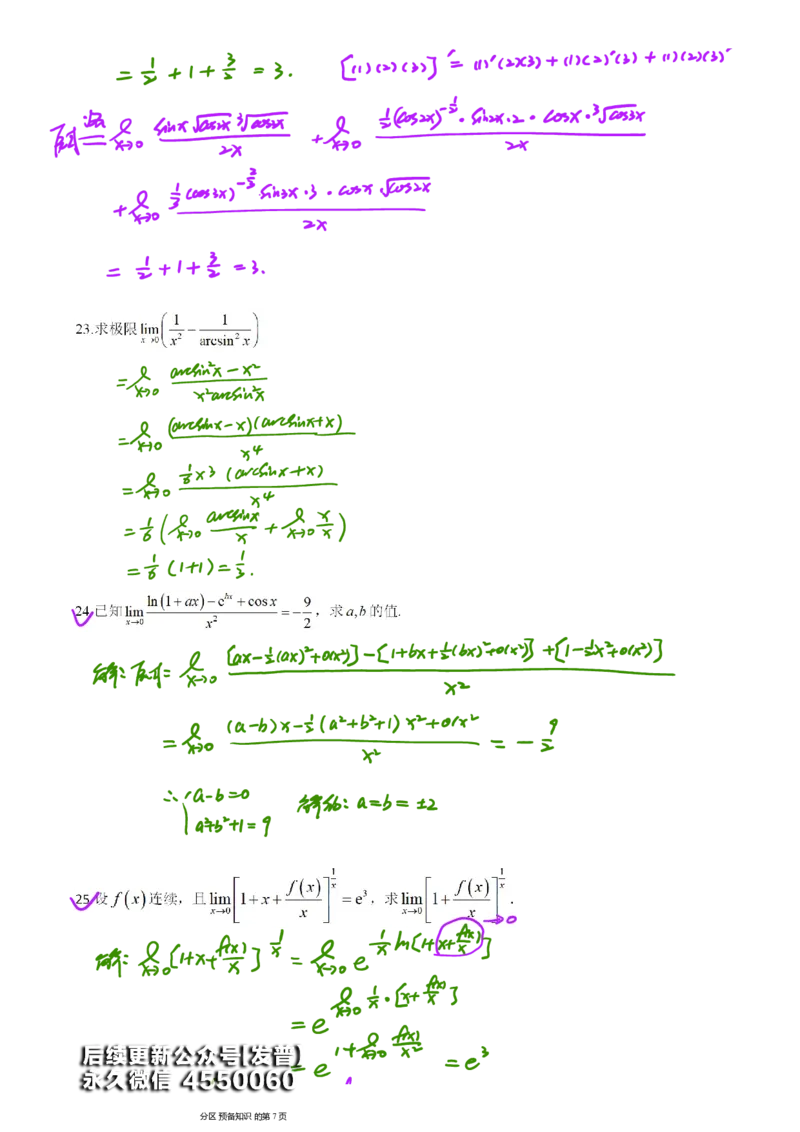 = 1/2 + 1 + 3/2 = 3. [(1)(2)(3)]' = (1)'(2)(3) + (1)(2)'(3) + (1)(2)(3)'
lim x→0 sinx √cos2x ³√cos3x / 2x + lim x→0 1/2 (cos2x)^(-1/2) · sin2x · 2 · cosx · ³√cos3x / 2x
+ lim x→0 1/3 (cos3x)^(-2/3) sin3x · 3 · cosx √cos2x / 2x
= 1/2 + 1 + 3/2 = 3.
23.求极限 lim x→0 (1/x² − 1/arcsin²x)
= l x→0 (arcsin²x − x²) / (x² arcsin²x)
= l x→0 (arcsinx − x)(arcsinx + x) / x⁴
= l x→0 1/6 x³ (arcsinx + x) / x⁴
= 1/6 ( l x→0 arcsinx/x + l x→0 x/x )
= 1/6 (1+1) = 1/3.
24.已知 lim x→0 (ln(1+ax) − e^(bx) + cosx) / x² = −9/2，求 a,b 的值.
解: 原式 = l x→0 {[ax − 1/2(ax)² + o(x²)] − [1 + bx + 1/2(bx)² + o(x²)] + [1 − 1/2x² + o(x²)]} / x²
= l x→0 ((a−b)x − 1/2(a² + b² + 1)x² + o(x²)) / x² = −9/2
∴ { a−b=0
a²+b²+1=9 解得: a=b=±2
25.设 f(x) 连续，且 lim x→0 [1 + x + f(x)/x]^(1/x) = e³，求 lim x→0 [1 + f(x)/x]^(1/x).
→0
解: l x→0 [1+x+f(x)/x]^(1/x) = l x→0 e^(1/x ln[1+x+f(x)/x])
= e^(l x→0 1/x · [x + f(x)/x])
= e^(1 + l x→0 f(x)/x²) = e³
后续更新公众号[发普)
永久微信 4550060
分区 预备知识 的第 7 页